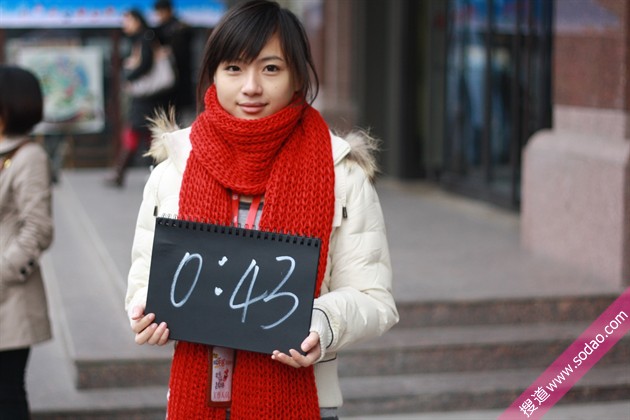 0:43
搜道www.sodao.com